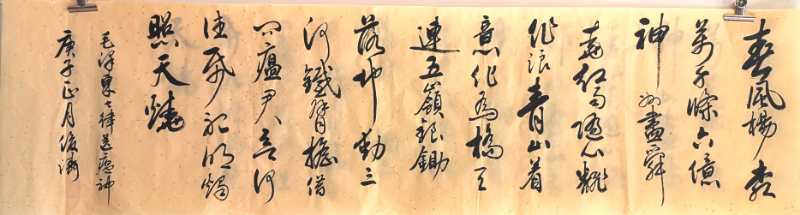 春風楊柳
萬千條六億
神州盡舜
堯紅雨隨心翻
作浪青山着
意化為橋天
連五嶺銀鋤
落地動三
河鐵臂搖借
问瘟君欲何
往紙船明燭
照天燒
毛澤東七律送瘟神
庚子正月